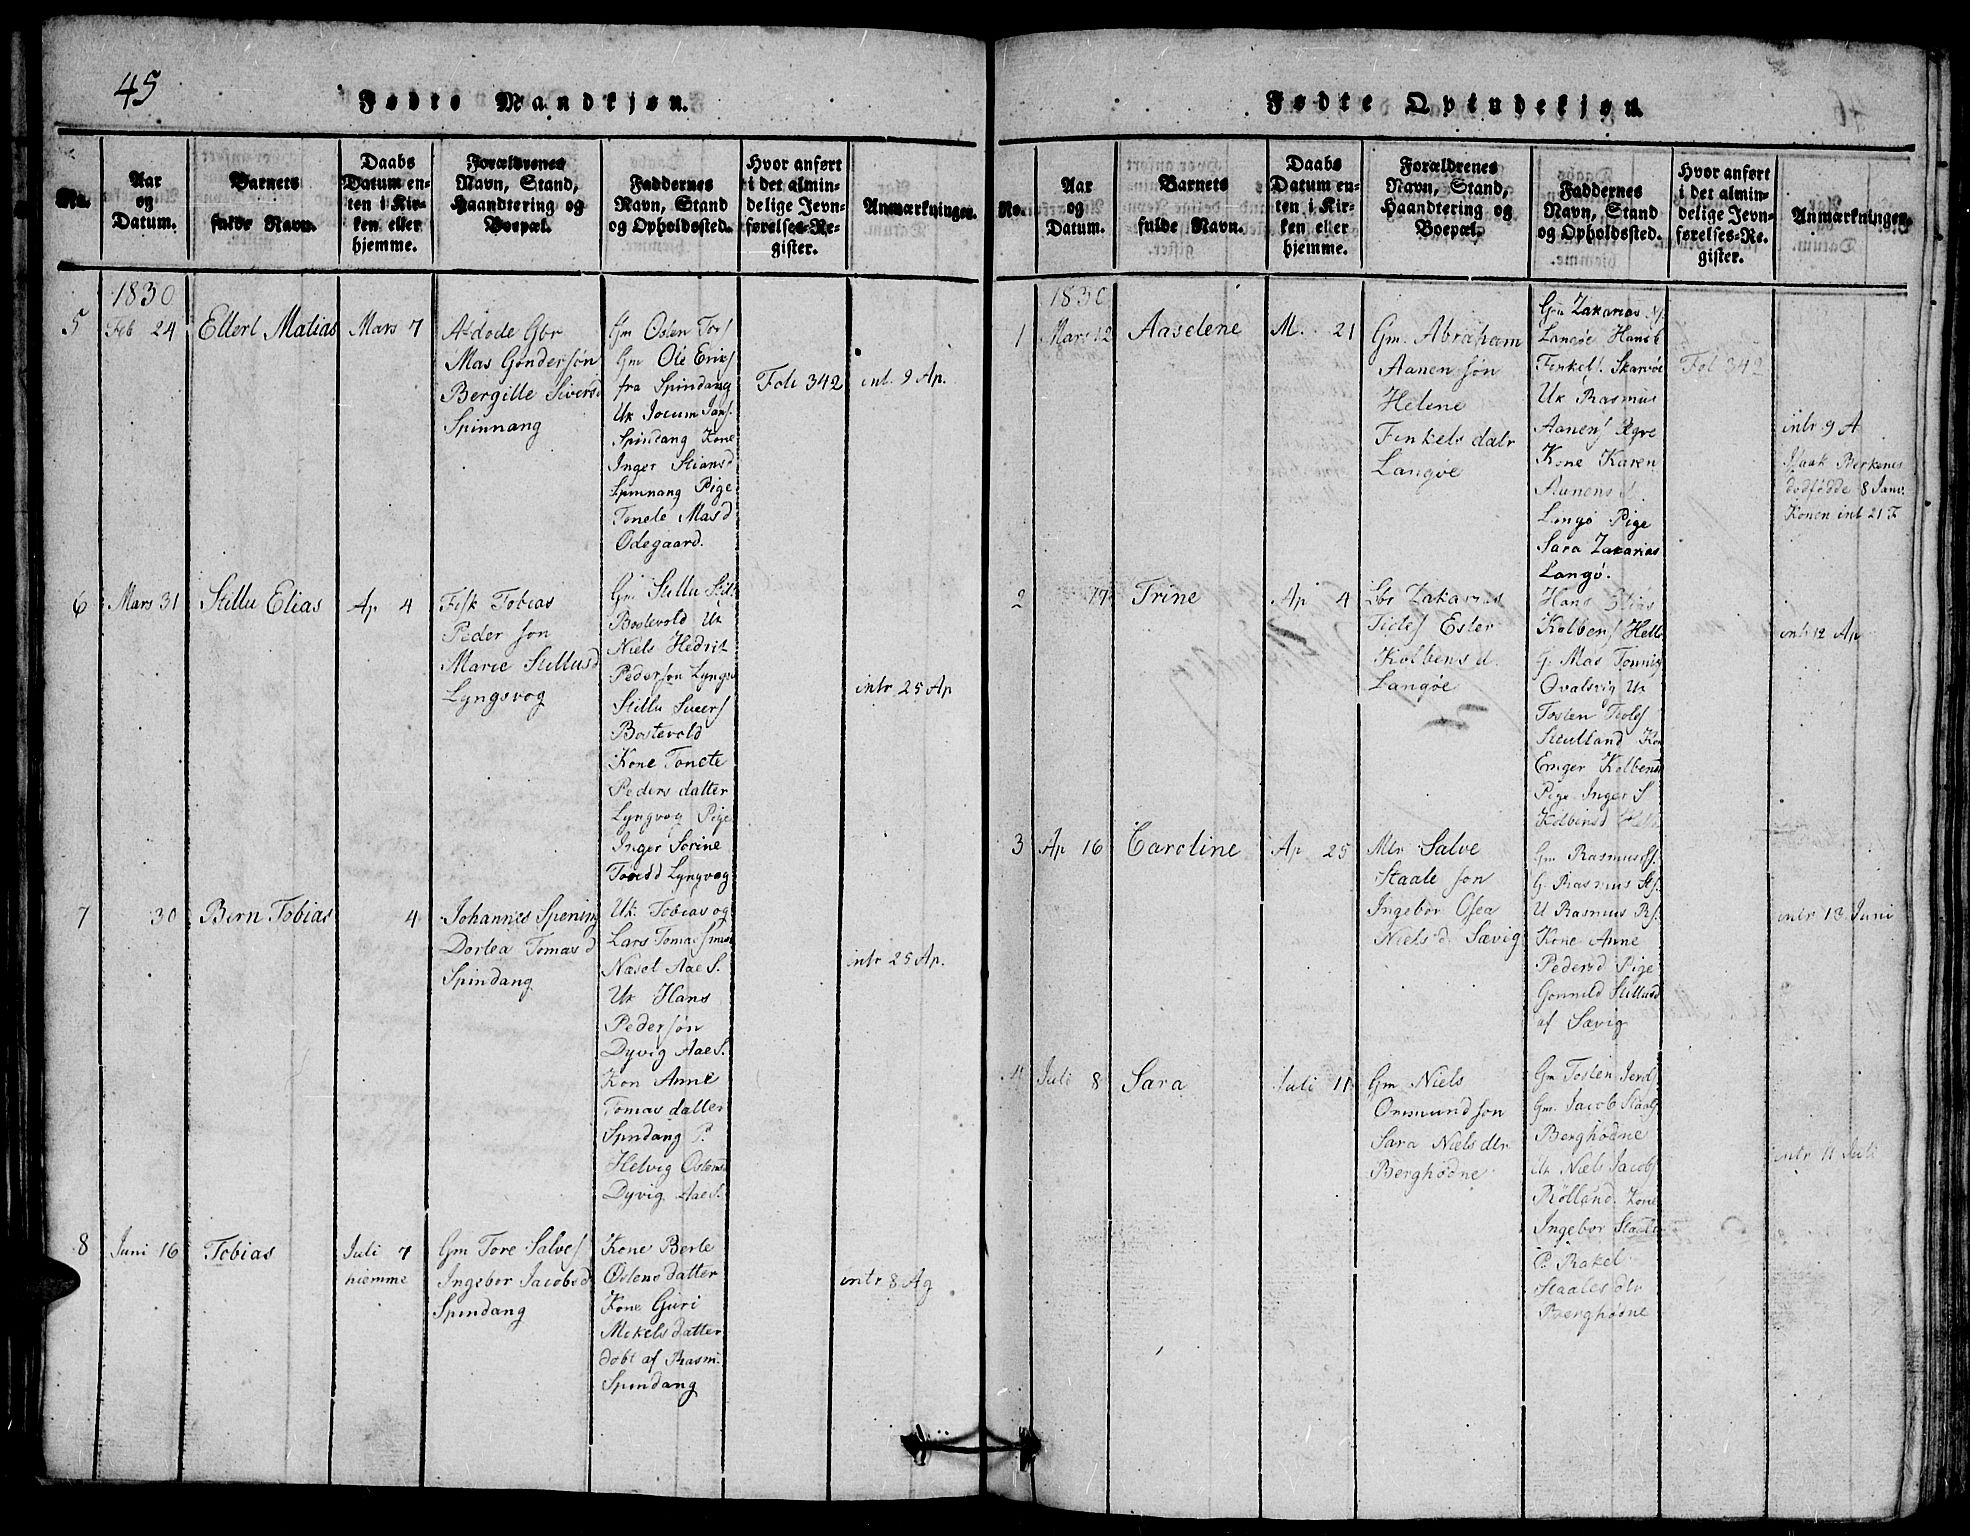 45
Fødte Mandkjøn.
No.
Aar
og
Datum.
Barnets
fulde Navn.
Daabs
Datum en-
ten i Kir-
ken eller
hjemme.
Forældrenes
Navn, Stand,
Haandtering og
Boepæl.
Faddernes
Navn, Stand
og Opholdssted.
Hvor anført
i det almin-
delige Jevn-
førelses-Re-
gister.
Anmærkninger.
1830
5
Feb 24
Ellert Matias
Mars 7
Gbr
Mas Gondersøn
Bergille Siversd
Spinnang
Gm Osten Tos
Gm Ole Eriks
fra Spindang
Uk Jocum Jans
Spindang Kone
Inger Stiansd
Spinnang Pige
Tonele Masd
Odegaard.
Foli 342
int. 9 Ap.
6
Mars 31
Stillu Elias
Ap 4
Fisk Tobias
Peder søn
Marie Stillusd
Lyngsvog
Gm Stillu
Bostevold Uk
Niels Hedrik
Pedersøn Lyngs
Stillu Sivers
Bostevold
Kone Toncte
Peders datter
Lyngvog Pige
Inger Sorine
Tored Lyngvog
intr 25 Ap
7
30
Bern Tobias
4
Johannes Spening
Dorlea Tomas d
Spindang
Uk. Tobias og
Lars Tomas
Næsel Aae S.
Uk Hans
Pedersøn
Dyvig Aae S.
Kon Anne
Tomas datter
Spindang P.
Helvig Ostens
Dyvig Aae S.
intr 25 Ap.
8
Juni 16
Tobias
Juli 7
hiemme
Gm Tore Salves
Ingebor Jacobsd
Spindang
Kone Berte
Ostens datter
Kone Guri
Mekels datter
dobt af Rasm.
Spindang
intr 8 Ag
Fødte Qvindekjøn.
No.
Aar
og
Datum.
Barnets
fulde Navn.
Daabs
Datum en-
ten i Kir-
ken eller
hjemme.
Forældrenes
Navn, Stand,
Haandtering og
Boepæl.
Faddernes
Navn, Stand
og Opholdssted.
Hvor anført
i det almin-
delige Jevn-
førelses-Re-
gister.
Anmærkninger.
1830
1
Mars 12
Aaselene
M. 21
Gm. Abraham
Aanen søn
Helene
Tenkels datr
Langøe
Gm Zakarias
Langøe Hans
Tenkels Skarvøe
Uk Rasmus
Aanens
Kone Karen
Aanens d.
Langø Pige
Sara Zakarias
Langø.
Fol 342
intr 9 A
Isaak Berkenes
dødfødde 8 Janv.
Konen int 21 F
2
17
Trine
Ap 4
Gbr Zakarias
Tidels Ester
Kolbens d.
Langøe
Hans Elias
Kolbens Helle
G. Mas Tonnis
Ovalsvig Uk
Tosten
Kone
Kolbensd
Pige Inger S
Kolbensd
intr 12 Ap
3
Ap 16
Caroline
Ap 25
Mtr Salve
Staale søn
Ingebor Osea
Niels d. Sævig
Gm Rasmus S.
G. Rasmus
U Rasmus R.
Kone Anne
Pedersd Pige
Gonnild Stillusd
af Sævig
intr 13 Juni
4
Juli 8
Sara
Juli 11
Gm Niels
Ommund søn
Sara Niels dtr
Berghødne
Gm Tosten
Gm. Jacob Staals
Berghødne
Uk Niels Jacobs
Rølland Kone
Ingebor
P. Rakel
Staales dtr
Berghødne
intr 11 Juli